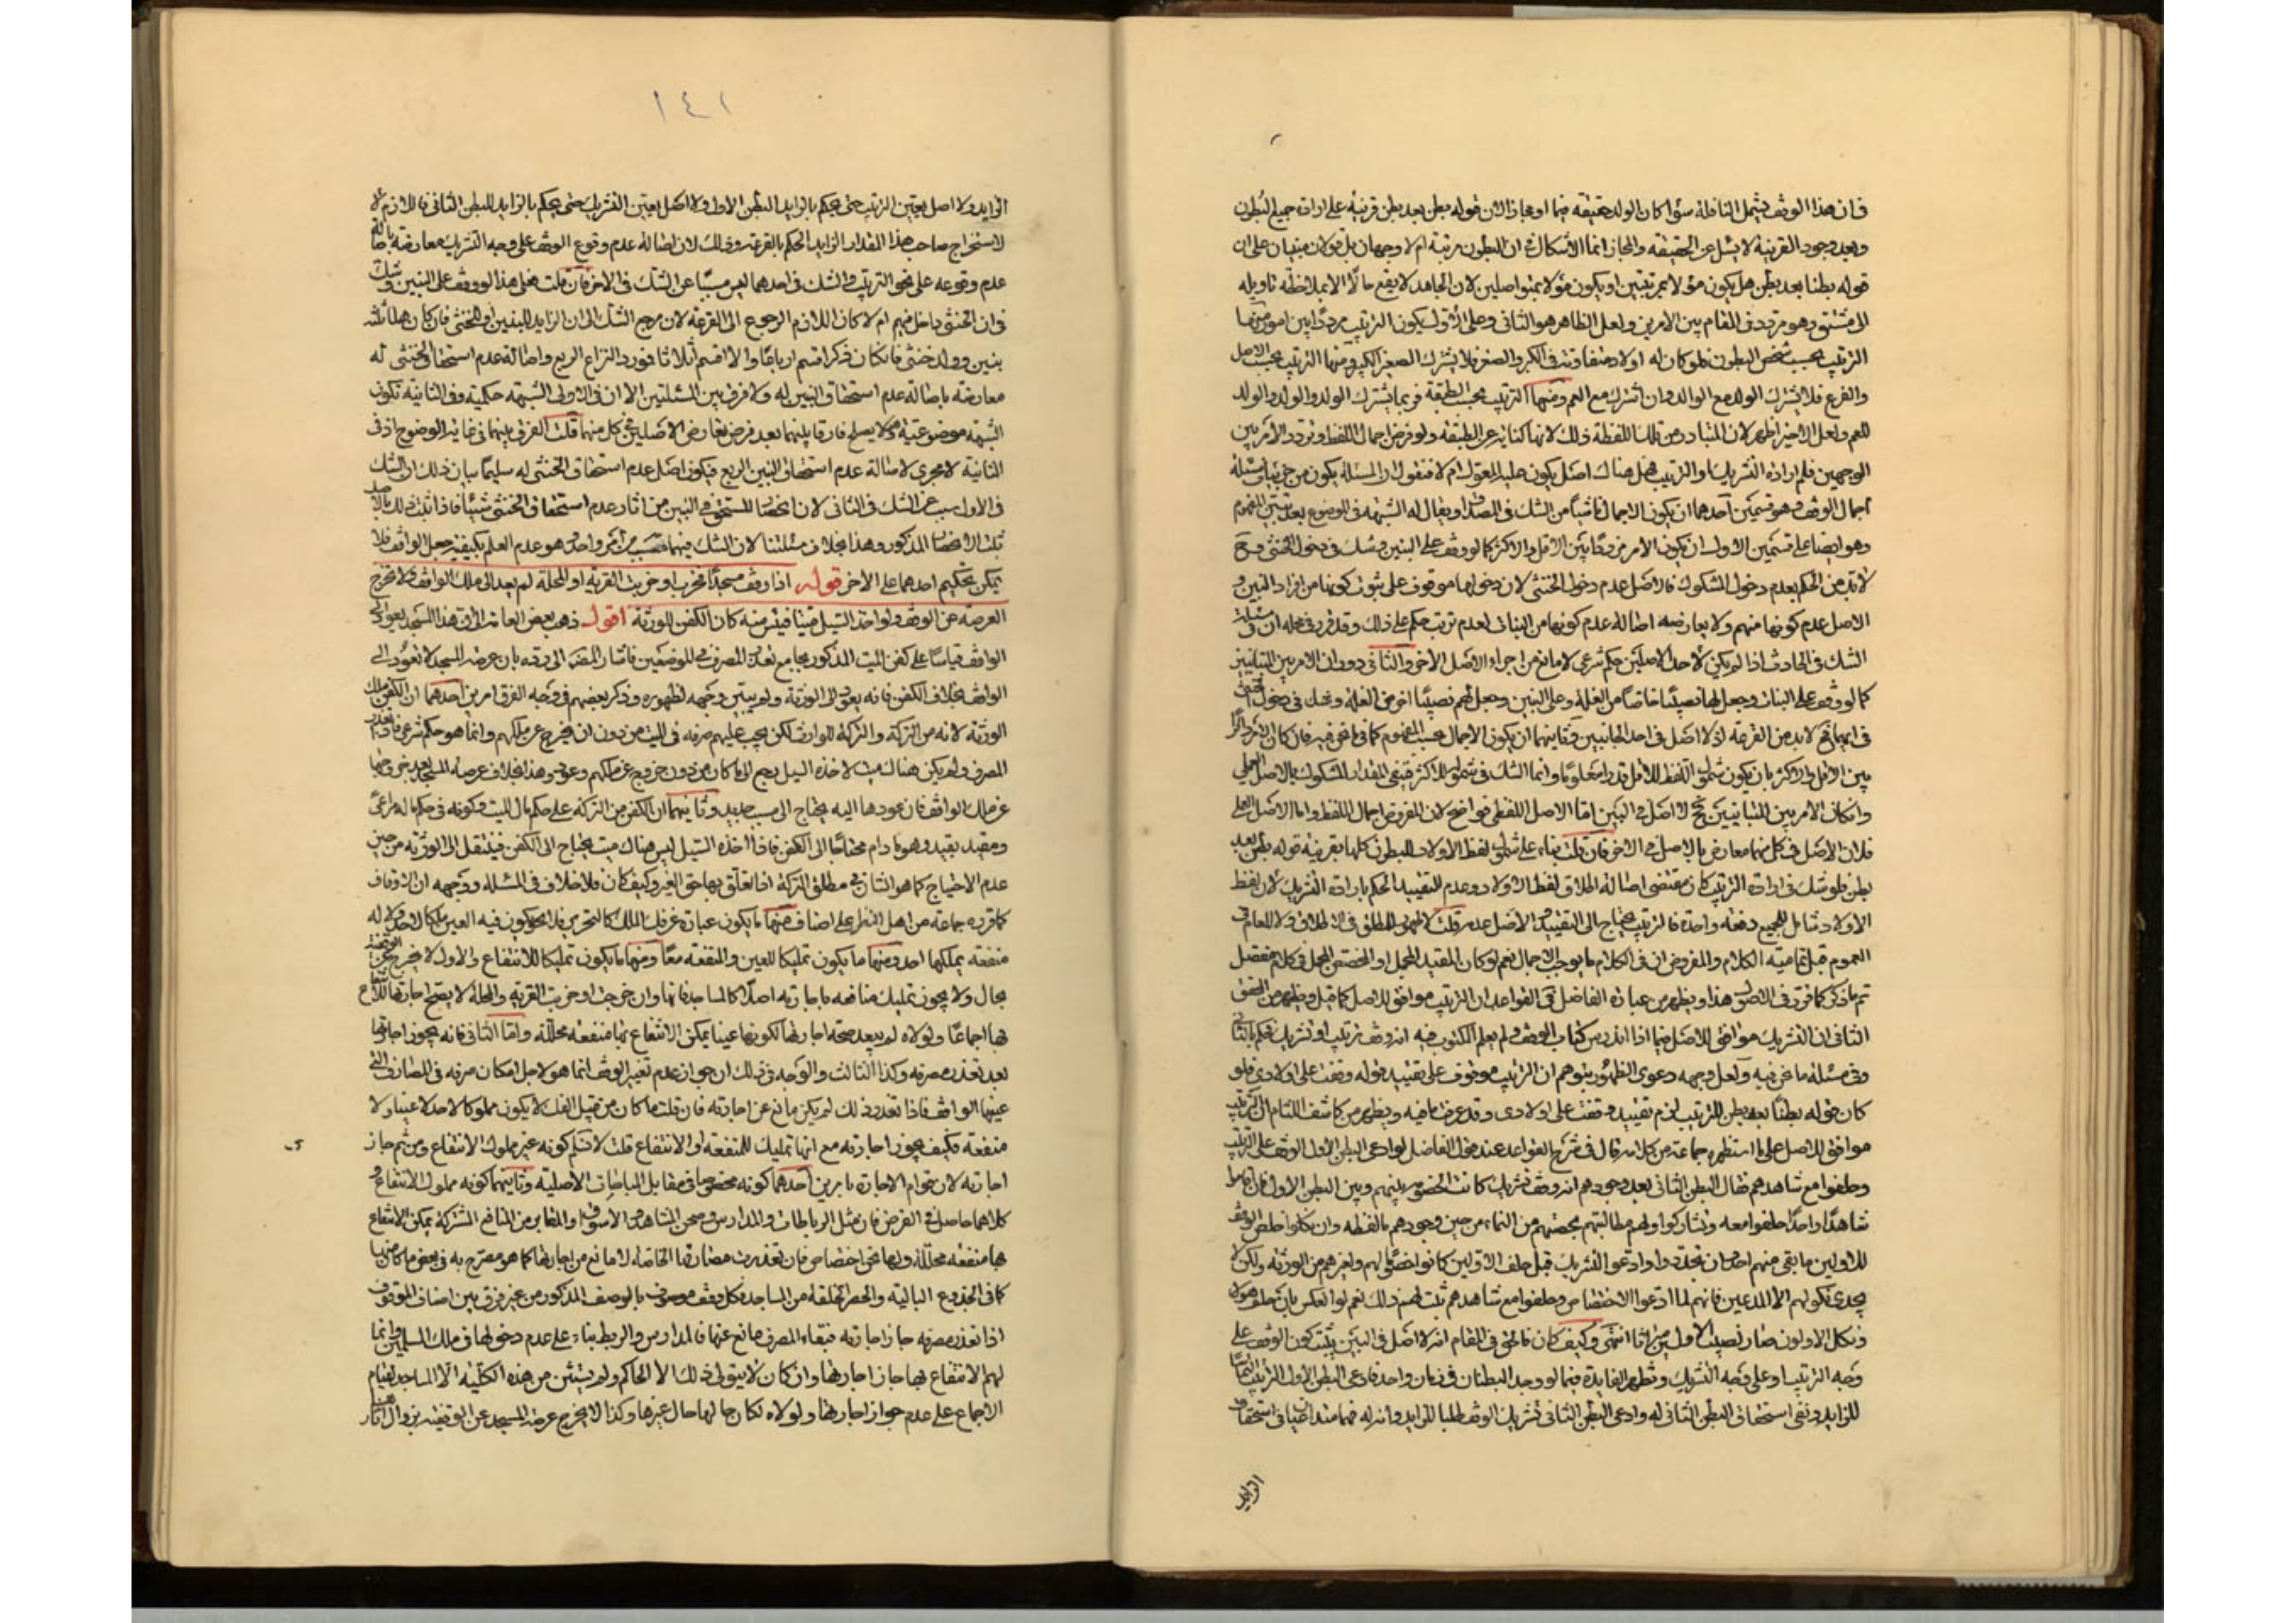 فان هذا الوقف يشمل النافلة سواء كان الولد حقيقة فيها او مجازا لان قوله بطن بعد بطن قرينة على ارادة جميع البطون
وبعد وجود القرينة لا يسئل عن الحقيقة والمجاز انما الاشكال في ان البطون مرتبة ام لا وجهان بل قولان مبنيان على ان
قوله بطنا بعد بطن هل يكون مؤلا بمرتبين او يكون مؤلا بمتواصلين لان الجامد لا يقع حالا الا بملاحظة تاويله
الى مشتق وهو مردد في المقام بين الامرين ولعل الظاهر هو الثاني وعلى الاول يكون الترتيب مرددا بين امور منها
الترتيب بحسب شخص البطون فلو كان له اولاد متفاوتة في الكبر والصغر فلا يشترك الصغير الكبير ومنها الترتيب بحسب الاصل
والفرع فلا يشترك الولد مع الوالد وان اشترك مع العم ومنها الترتيب بحسب الطبقة فربما يشترك الولد والوالد والولد
للعم ولعل الاخير اظهر لان المتبادر من تلك اللفظة ذلك لانها كناية عن الطبقة ولو فرض اجمال اللفظ وتردد الامر بين
الوجهين فلم ارادة التشريك او الترتيب فهل هناك اصل يكون عليه المعول ام لا فنقول ان المسئلة يكون من جزئيات مسئلة
اجمال الوقف وهو قسمين احدهما ان يكون الاجمال ناشيا من الشك في المصداق ويقال له الشبهة في الموضوع بعد تبين المفهوم
وهو ايضا على قسمين الاول ان يكون الامر مرددا بين الاقل والاكثر كما لو وقف على البنين وشك في دخول الخنثى وح
لا بد من الحكم بعدم دخول المشكوك فالاصل عدم دخول الخنثى لان دخولها موقوف على ثبوت كونها من افراد البنين و
الاصل عدم كونها منهم ولا يعارضه اصالة عدم كونها من البنات لعدم ترتب حكم على ذلك وقد قرر في محله ان في مسئلة
الشك في الحادث اذا لم يكن لاحد الاصلين حكم شرعي لا مانع من اجراء الاصل الاخر والثاني دوران الامر بين المتباينين
كما لو وقف على البنات وجعل لها نصيبا خاصا من الغلة وعلى البنين وجعل لهم نصيبا اخر من الغلة وشك في دخول الخنثى
في ايهما فح لا بد من القرعة اذ لا اصل في احد الجانبين وثانيهما ان يكون الاجمال بحسب المفهوم كما في ما نحن فيه فان كان الامر دائرا
بين الاقل والاكثر بان يكون شمول اللفظ للاقل قدرا معلوما وانما الشك في شموله للاكثر فينفى المقدار المشكوك بالاصل العملي
وان كان الامر بين المتباينين فح لا اصل في البين اما الاصل اللفظي فواضح لان المفروض اجمال اللفظ واما الاصل العملي
فلان الاصل في كل منهما معارض بالاصل في الاخر فان قلت بناء على شمول لفظ الاولاد للبطون كلها بقرينة قوله بطن بعد
بطن فلو شك في ارادة الترتيب كان مقتضى اصالة اطلاق لفظ الاولاد وعدم التقييد الحكم بارادة التشريك لان لفظ
الاولاد شامل للجميع دفعة واحدة فالترتيب يحتاج الى التقييد والاصل عدمه قلت لا ظهور للمطلق في الاطلاق ولا للعام في
العموم قبل تمامية الكلام والمفروض ان في الكلام ما يوجب الاجمال نعم لو كان المقيد المجمل او المخصص المجمل في كلام منفصل
تم ما ذكر كما قرر في الاصول هذا ويظهر من عبارة الفاضل في القواعد ان الترتيب موافق للاصل كما قيل ويظهر من المحقق
الثاني ان التشريك موافق للاصل فيما اذا اندرس كتاب الوقف ولم يعلم المكتوب فيه انه وقف ترتيب او تشريك فحكم بالثاني
وفي مسئلة ما نحن فيه ولعل وجهه دعوى الظهور بتوهم ان الترتيب موقوف على تقييد قوله وقفت على اولادي فلو
كان قوله بطنا بعد بطن للترتيب لزم تقييد وقفت على اولادي وقد عرفت ما فيه ويظهر من كاشف اللثام ان الترتيب
موافق للاصل على ما استظهره جماعة من كلامه قال في شرح القواعد عند قول الفاضل لو ادعى البطن الاول الوقف على الترتيب
وحلفوا مع شاهدهم فقال البطن الثاني بعد وجودهم انه وقف تشريك كانت الخصومة بينهم وبين البطن الاول فان اقاموا
شاهدا واحدا حلفوا معه وتشاركوا ولهم مطالبتهم بحصتهم من النماء من حين وجودهم بالفظه وان نكلوا خلص الوقف
للاولين ما بقي منهم احد وان تجددوا وادعوا التشريك قبل حلف الاولين كانوا خصماء لهم ولغيرهم من الورثة ولكن لا
يجدي نكولهم الا المدعين فانهم لما ادعوا الاختصاص وحلفوا مع شاهدهم ثبت لهم ذلك نعم لو انعكس بان حلف هؤلاء
ونكل الاولون صار نصيب الاول ميراثا انتهى وكيف كان فالحق في المقام انه لا اصل في البين يثبت كون الوقف على
وجه الترتيب او على وجه التشريك وتظهر الفايدة فيما لو وجد البطنان في زمان واحد فادعى البطن الاول الترتيب
للزايد ونفى استحقاق البطن الثاني له وادعى البطن الثاني تشريك الوقف طلبا للزايد وانه له فهما متداعيان في استحقاق
الزايد
١٤١
الزايد ولا اصل يعين الترتيب حتى يحكم بالزايد للبطن الاول ولا اصل يعين التشريك حتى يحكم بالزايد للبطن الثاني فاللازم
لاستخراج صاحب هذا المقدار الزايد الحكم بالقرعة وذلك لان اصالة عدم وقوع الوقف على وجه التشريك معارضة باصالة
عدم وقوعه على نحو الترتيب والشك في احدهما ليس مسببا عن الشك في الاخر فان قلت فعلى هذا لو وقف على البنين وشك
في ان الخنثى داخل فيهم ام لا كان اللازم الرجوع الى القرعة لان مرجع الشك الى ان الزايد للبنين او للخنثى فان كان هناك ثلثة
بنين وولد خنثى فان كان ذكرا قسم ارباعا والا قسم اثلاثا فمورد النزاع الربع واصالة عدم استحقاق الخنثى له
معارضة باصالة عدم استحقاق البنين له ولا فرق بين المسئلتين الا ان في الاولى الشبهة حكمية وفي الثانية تكون
الشبهة موضوعية ولا يصلح فارقا بينهما بعد فرض تعارض الاصلين في كل منهما قلت الفرق بينهما في غاية الوضوح اذ في
الثانية لا مجرى لاصالة عدم استحقاق البنين الربع فيكون اصل عدم استحقاق الخنثى له سليما بيان ذلك ان الشك
في الاول سبب عن الشك في الثاني لان انحصار المستحق في البنين من اثار عدم استحقاق الخنثى شيئا فاذا ثبت ذلك بالاصل
ثبت الانحصار المذكور وهذا بخلاف مسئلتنا لان الشك فيهما مسبب من امر واحد وهو عدم العلم بكيفية جعل الواقف فلا
يمكن تحكيم احدهما على الاخر قوله اذا وقف مسجدا فخرب او خربت القرية او المحلة لم يعد الى ملك الواقف ولا تخرج
العرصة عن الوقف ولو اخذ السيل ميتا فيئس منه كان الكفن للورثة اقول ذهب بعض العامة الى ان هذا المسجد يعود الى
الواقف قياسا على كفن الميت المذكور بجامع تعذر المصرف في الموضعين فاشار المصنف الى رده بان عرصة المسجد لا تعود الى
الواقف بخلاف الكفن فانه يعود الى الورثة ولم يبين وجهه لظهوره وذكر بعضهم في وجه الفرق امرين احدهما ان الكفن ملك
الورثة لانه من التركة والتركة للوارث لكن يجب عليهم صرفه في الميت من دون ان يخرج عن ملكهم وانما هو حكم شرعي فاذا تعذر
المصرف ولم يكن هناك ميت لاخذه السيل رجع الى ما كان من دون خروج عن ملكهم وعود وهذا بخلاف عرصة المسجد بعد خروجها
عن ملك الواقف فان عودها اليه يحتاج الى سبب جديد وثانيهما ان الكفن من التركة على حكم مال الميت وكونه في حكم ماله مراعى
ومقيد بقيد وهو ما دام محتاجا الى الكفن فاذا اخذه السيل ليس هناك ميت يحتاج الى الكفن فينتقل الى الورثة من حين
عدم الاحتياج كما هو الشان في مطلق التركة اذا تعلق بها حق الغير وكيف كان فلا خلاف في المسئلة ووجهه ان الاوقاف
كما قرره جماعة من اهل النظر على اصناف منها ما يكون عبارة عن فك الملك كالتحرير فلا يكون فيه العين ملكا لاحد ولا له
منفعة يملكها احد ومنها ما يكون تمليكا للعين والمنفعة معا ومنها ما يكون تمليكا للانتفاع والاول لا يخرج عن الوقفية
بحال ولا يجوز تمليك منافعه باجارته اصلا كالمساجد فانها وان خربت او خربت القرية والمحلة لا يصح اجارتها للانتفاع
بها اجماعا ولولاه لم يبعد صحة اجارتها لكونها عينا يمكن الانتفاع بها منفعة محللة واما الثاني فانه يجوز اجارتها
بعد تعذر مصرفه وكذا الثالث والوجه في ذلك ان جواز عدم تغيير الوقف انما هو لاجل امكان صرفه في المصارف التي
عينها الواقف فاذا تعذر ذلك لم يكن مانع عن اجارته فان قلت ما كان من قبيل الفك لا يكون مملوكا لاحد لا عينا ولا
منفعة فكيف يجوز اجارته مع انها تمليك للمنفعة او الانتفاع قلت لا نسلم كونه غير مملوك الانتفاع ومن ثم جاز
اجارته لان قوام الاجارة بامرين احدهما كونه مخصوصا في مقابل المباحات الاصلية وثانيهما كونه مملوك الانتفاع و
كلاهما حاصل في الفرض فان مثل الرباطات والمدارس وصحن المشاهد والاسواق والمقابر من المنافع المشتركة يمكن الانتفاع
بها منفعة محللة ولها نحو اختصاص فان تعذرت مصارفها الخاصة لا مانع من اجارتها كما هو مصرح به في بعض ما كان منها
كما في الجذوع البالية والحصر الخلقة من المساجد فكل وقف موصوف بالوصف المذكور من غير فرق بين اصناف الموقوف
اذا تعذر صرفه جاز اجارته فبقاء المصرف مانع عنها فالمدارس والربط بناء على عدم دخولها في ملك المسلمين وانما
لهم الانتفاع بها جاز اجارتها وان كان لا يتولى ذلك الا الحاكم ولم يستثن من هذه الكلية الا المساجد لقيام
الاجماع على عدم جواز اجارتها ولولاه لكان حالها حال غيرها وكذا لا يخرج عرصة المسجد عن الوقفية بزوال اثار